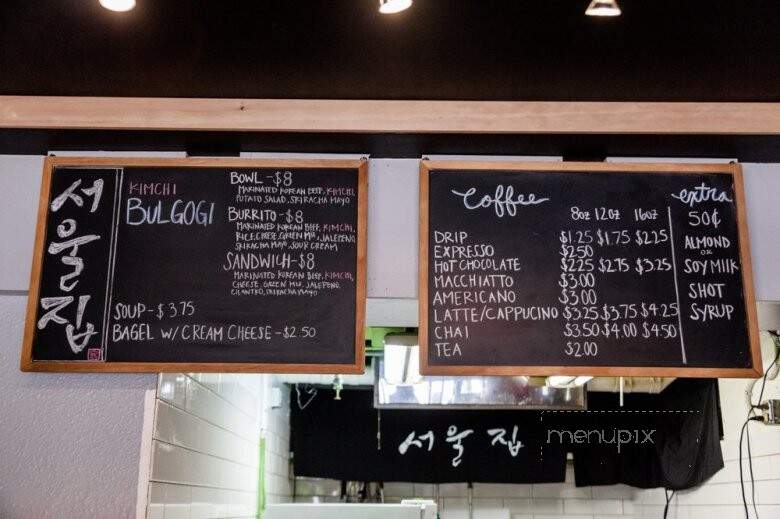 서울집
KIMCHI
BULGOGI
BOWL-$8
MARINATED KOREAN BEEF, KIMCHI,
POTATO SALAD, SRIRACHA MAYO
BURRITO-$8
MARINATED KOREAN BEEF, KIMCHI,
RICE, CHEESE, GREEN MIX, JALEPENO,
SRIRACHA MAYO, SOUR CREAM
SANDWICH-$8
MARINATED KOREAN BEEF, KIMCHI,
CHEESE, GREEN MIX, JALEPENO,
CILANTRO, SRIRACHA MAYO
SOUP-$3.75
BAGEL W/ CREAM CHEESE-$2.50
Coffee
8oz 12oz 16oz
DRIP $1.25 $1.75 $2.25
EXPRESSO $2.50
HOT CHOCOLATE $2.25 $2.75 $3.25
MACCHIATTO $3.00
AMERICANO $3.00
LATTE/CAPPUCINO $3.25 $3.75 $4.25
CHAI $3.50 $4.00 $4.50
TEA $2.00
extra
50¢
ALMOND
OR
SOY MILK
SHOT
SYRUP
서울집
menupix